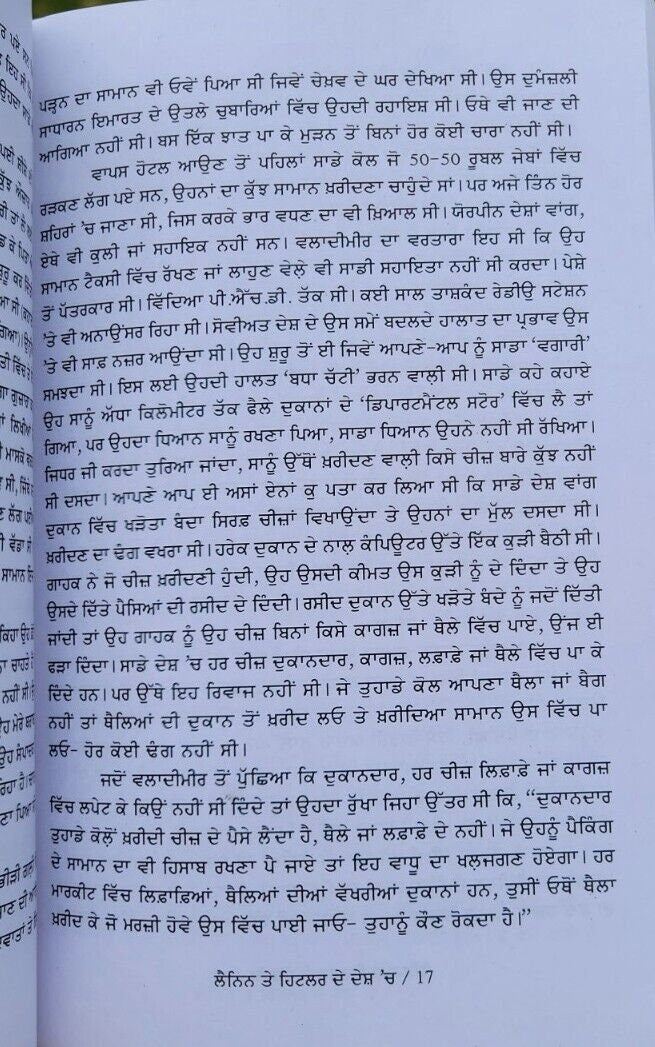 ਪੜ੍ਹਨ ਦਾ ਸਾਮਾਨ ਵੀ ਓਵੇਂ ਪਿਆ ਸੀ ਜਿਵੇਂ ਚੇਖ਼ਵ ਦੇ ਘਰ ਦੇਖਿਆ ਸੀ। ਉਸ ਦੁਮੰਜ਼ਲੀ
ਸਾਧਾਰਨ ਇਮਾਰਤ ਦੇ ਉਤਲੇ ਚੁਬਾਰਿਆਂ ਵਿੱਚ ਉਹਦੀ ਰਹਾਇਸ਼ ਸੀ। ਓਥੇ ਵੀ ਜਾਣ ਦੀ
ਆਗਿਆ ਨਹੀਂ ਸੀ। ਬਸ ਇੱਕ ਝਾਤ ਪਾ ਕੇ ਮੁੜਨ ਤੋਂ ਬਿਨਾਂ ਹੋਰ ਕੋਈ ਚਾਰਾ ਨਹੀਂ ਸੀ।
ਵਾਪਸ ਹੋਟਲ ਆਉਣ ਤੋਂ ਪਹਿਲਾਂ ਸਾਡੇ ਕੋਲ ਜੋ 50-50 ਰੂਬਲ ਜੇਬਾਂ ਵਿੱਚ
ਰੜਕਣ ਲੱਗ ਪਏ ਸਨ, ਉਹਨਾਂ ਦਾ ਕੁੱਝ ਸਾਮਾਨ ਖ਼ਰੀਦਣਾ ਚਾਹੁੰਦੇ ਸਾਂ। ਪਰ ਅਜੇ ਤਿੰਨ ਹੋਰ
ਸ਼ਹਿਰਾਂ 'ਚ ਜਾਣਾ ਸੀ, ਜਿਸ ਕਰਕੇ ਭਾਰ ਵਧਣ ਦਾ ਵੀ ਖ਼ਿਆਲ ਸੀ। ਯੋਰਪੀਨ ਦੇਸ਼ਾਂ ਵਾਂਗ,
ਏਥੇ ਵੀ ਕੁਲੀ ਜਾਂ ਸਹਾਇਕ ਨਹੀਂ ਸਨ। ਵਲਾਦੀਮੀਰ ਦਾ ਵਰਤਾਰਾ ਇਹ ਸੀ ਕਿ ਉਹ
ਸਾਮਾਨ ਟੈਕਸੀ ਵਿੱਚ ਰੱਖਣ ਜਾਂ ਲਾਹੁਣ ਵੇਲ਼ੇ ਵੀ ਸਾਡੀ ਸਹਾਇਤਾ ਨਹੀਂ ਸੀ ਕਰਦਾ। ਪੇਸ਼ੇ
ਤੋਂ ਪੱਤਰਕਾਰ ਸੀ। ਵਿੱਦਿਆ ਪੀ.ਐੱਚ.ਡੀ. ਤੱਕ ਸੀ। ਕਈ ਸਾਲ ਤਾਸ਼ਕੰਦ ਰੇਡੀਉ ਸਟੇਸ਼ਨ
'ਤੇ ਵੀ ਅਨਾਉਂਸਰ ਰਿਹਾ ਸੀ। ਸੋਵੀਅਤ ਦੇਸ਼ ਦੇ ਉਸ ਸਮੇਂ ਬਦਲਦੇ ਹਾਲਾਤ ਦਾ ਪ੍ਰਭਾਵ ਉਸ
'ਤੇ ਵੀ ਸਾਫ਼ ਨਜ਼ਰ ਆਉਂਦਾ ਸੀ। ਉਹ ਸ਼ੁਰੂ ਤੋਂ ਈ ਜਿਵੇਂ ਆਪਣੇ-ਆਪ ਨੂੰ ਸਾਡਾ 'ਵਗਾਰੀ'
ਸਮਝਦਾ ਸੀ। ਇਸ ਲਈ ਉਹਦੀ ਹਾਲਤ 'ਬਧਾ ਚੱਟੀ' ਭਰਨ ਵਾਲ਼ੀ ਸੀ। ਸਾਡੇ ਕਹੇ ਕਹਾਏ
ਉਹ ਸਾਨੂੰ ਅੱਧਾ ਕਿਲੋਮੀਟਰ ਤੱਕ ਫੈਲੇ ਦੁਕਾਨਾਂ ਦੇ 'ਡਿਪਾਰਟਮੈਂਟਲ ਸਟੋਰ' ਵਿੱਚ ਲੈ ਤਾਂ
ਗਿਆ, ਪਰ ਉਹਦਾ ਧਿਆਨ ਸਾਨੂੰ ਰਖਣਾ ਪਿਆ, ਸਾਡਾ ਧਿਆਨ ਉਹਨੇ ਨਹੀਂ ਸੀ ਰੱਖਿਆ।
ਜਿਧਰ ਜੀ ਕਰਦਾ ਤੁਰਿਆ ਜਾਂਦਾ, ਸਾਨੂੰ ਉੱਥੋਂ ਖ਼ਰੀਦਣ ਵਾਲ਼ੀ ਕਿਸੇ ਚੀਜ਼ ਬਾਰੇ ਕੁੱਝ ਨਹੀਂ
ਸੀ ਦਸਦਾ। ਆਪਣੇ ਆਪ ਈ ਅਸਾਂ ਏਨਾਂ ਕੁ ਪਤਾ ਕਰ ਲਿਆ ਸੀ ਕਿ ਸਾਡੇ ਦੇਸ਼ ਵਾਂਗ
ਦੁਕਾਨ ਵਿੱਚ ਖੜੋਤਾ ਬੰਦਾ ਸਿਰਫ਼ ਚੀਜ਼ਾਂ ਵਿਖਾਉਂਦਾ ਤੇ ਉਹਨਾਂ ਦਾ ਮੁੱਲ ਦਸਦਾ ਸੀ।
ਖ਼ਰੀਦਣ ਦਾ ਢੰਗ ਵਖਰਾ ਸੀ। ਹਰੇਕ ਦੁਕਾਨ ਦੇ ਨਾਲ਼ ਕੰਪਿਊਟਰ ਉੱਤੇ ਇੱਕ ਕੁੜੀ ਬੈਠੀ ਸੀ।
ਗਾਹਕ ਨੇ ਜੋ ਚੀਜ਼ ਖ਼ਰੀਦਣੀ ਹੁੰਦੀ, ਉਹ ਉਸਦੀ ਕੀਮਤ ਉਸ ਕੁੜੀ ਨੂੰ ਦੇ ਦਿੰਦਾ ਤੇ ਉਹ
ਉਸਦੇ ਦਿੱਤੇ ਪੈਸਿਆਂ ਦੀ ਰਸੀਦ ਦੇ ਦਿੰਦੀ। ਰਸੀਦ ਦੁਕਾਨ ਉੱਤੇ ਖੜੋਤੇ ਬੰਦੇ ਨੂੰ ਜਦੋਂ ਦਿੱਤੀ
ਜਾਂਦੀ ਤਾਂ ਉਹ ਗਾਹਕ ਨੂੰ ਉਹ ਚੀਜ਼ ਬਿਨਾਂ ਕਿਸੇ ਕਾਗਜ਼ ਜਾਂ ਥੈਲੇ ਵਿੱਚ ਪਾਏ, ਉਂਜ ਈ
ਫੜਾ ਦਿੰਦਾ। ਸਾਡੇ ਦੇਸ਼ 'ਚ ਹਰ ਚੀਜ਼ ਦੁਕਾਨਦਾਰ, ਕਾਗਜ਼, ਲਫ਼ਾਫ਼ੇ ਜਾਂ ਥੈਲੇ ਵਿੱਚ ਪਾ ਕੇ
ਦਿੰਦੇ ਹਨ। ਪਰ ਉੱਥੇ ਇਹ ਰਿਵਾਜ ਨਹੀਂ ਸੀ। ਜੇ ਤੁਹਾਡੇ ਕੋਲ ਆਪਣਾ ਥੈਲਾ ਜਾਂ ਬੈਗ
ਨਹੀਂ ਤਾਂ ਥੈਲਿਆਂ ਦੀ ਦੁਕਾਨ ਤੋਂ ਖ਼ਰੀਦ ਲਓ ਤੇ ਖ਼ਰੀਦਿਆ ਸਾਮਾਨ ਉਸ ਵਿੱਚ ਪਾ
ਲਓ- ਹੋਰ ਕੋਈ ਢੰਗ ਨਹੀਂ ਸੀ।
ਜਦੋਂ ਵਲਾਦੀਮੀਰ ਤੋਂ ਪੁੱਛਿਆ ਕਿ ਦੁਕਾਨਦਾਰ, ਹਰ ਚੀਜ਼ ਲਿਫ਼ਾਫ਼ੇ ਜਾਂ ਕਾਗਜ਼
ਵਿੱਚ ਲਪੇਟ ਕੇ ਕਿਉਂ ਨਹੀਂ ਸੀ ਦਿੰਦੇ ਤਾਂ ਉਹਦਾ ਰੁੱਖਾ ਜਿਹਾ ਉੱਤਰ ਸੀ ਕਿ, "ਦੁਕਾਨਦਾਰ
ਤੁਹਾਡੇ ਕੋਲ਼ੋਂ ਖ਼ਰੀਦੀ ਚੀਜ਼ ਦੇ ਪੈਸੇ ਲੈਂਦਾ ਹੈ, ਥੈਲੇ ਜਾਂ ਲਫ਼ਾਫ਼ੇ ਦੇ ਨਹੀਂ। ਜੇ ਉਹਨੂੰ ਪੈਕਿੰਗ
ਦੇ ਸਾਮਾਨ ਦਾ ਵੀ ਹਿਸਾਬ ਰਖਣਾ ਪੈ ਜਾਏ ਤਾਂ ਇਹ ਵਾਧੂ ਦਾ ਖਲਜਗਣ ਹੋਏਗਾ। ਹਰ
ਮਾਰਕੀਟ ਵਿੱਚ ਲਿਫ਼ਾਫ਼ਿਆਂ, ਥੈਲਿਆਂ ਦੀਆਂ ਵੱਖਰੀਆਂ ਦੁਕਾਨਾਂ ਹਨ, ਤੁਸੀਂ ਓਥੋਂ ਥੈਲਾ
ਖ਼ਰੀਦ ਕੇ ਜੋ ਮਰਜ਼ੀ ਹੋਵੇ ਉਸ ਵਿੱਚ ਪਾਈ ਜਾਓ- ਤੁਹਾਨੂੰ ਕੌਣ ਰੋਕਦਾ ਹੈ।"
ਲੈਨਿਨ ਤੇ ਹਿਟਲਰ ਦੇ ਦੇਸ਼ 'ਚ / 17